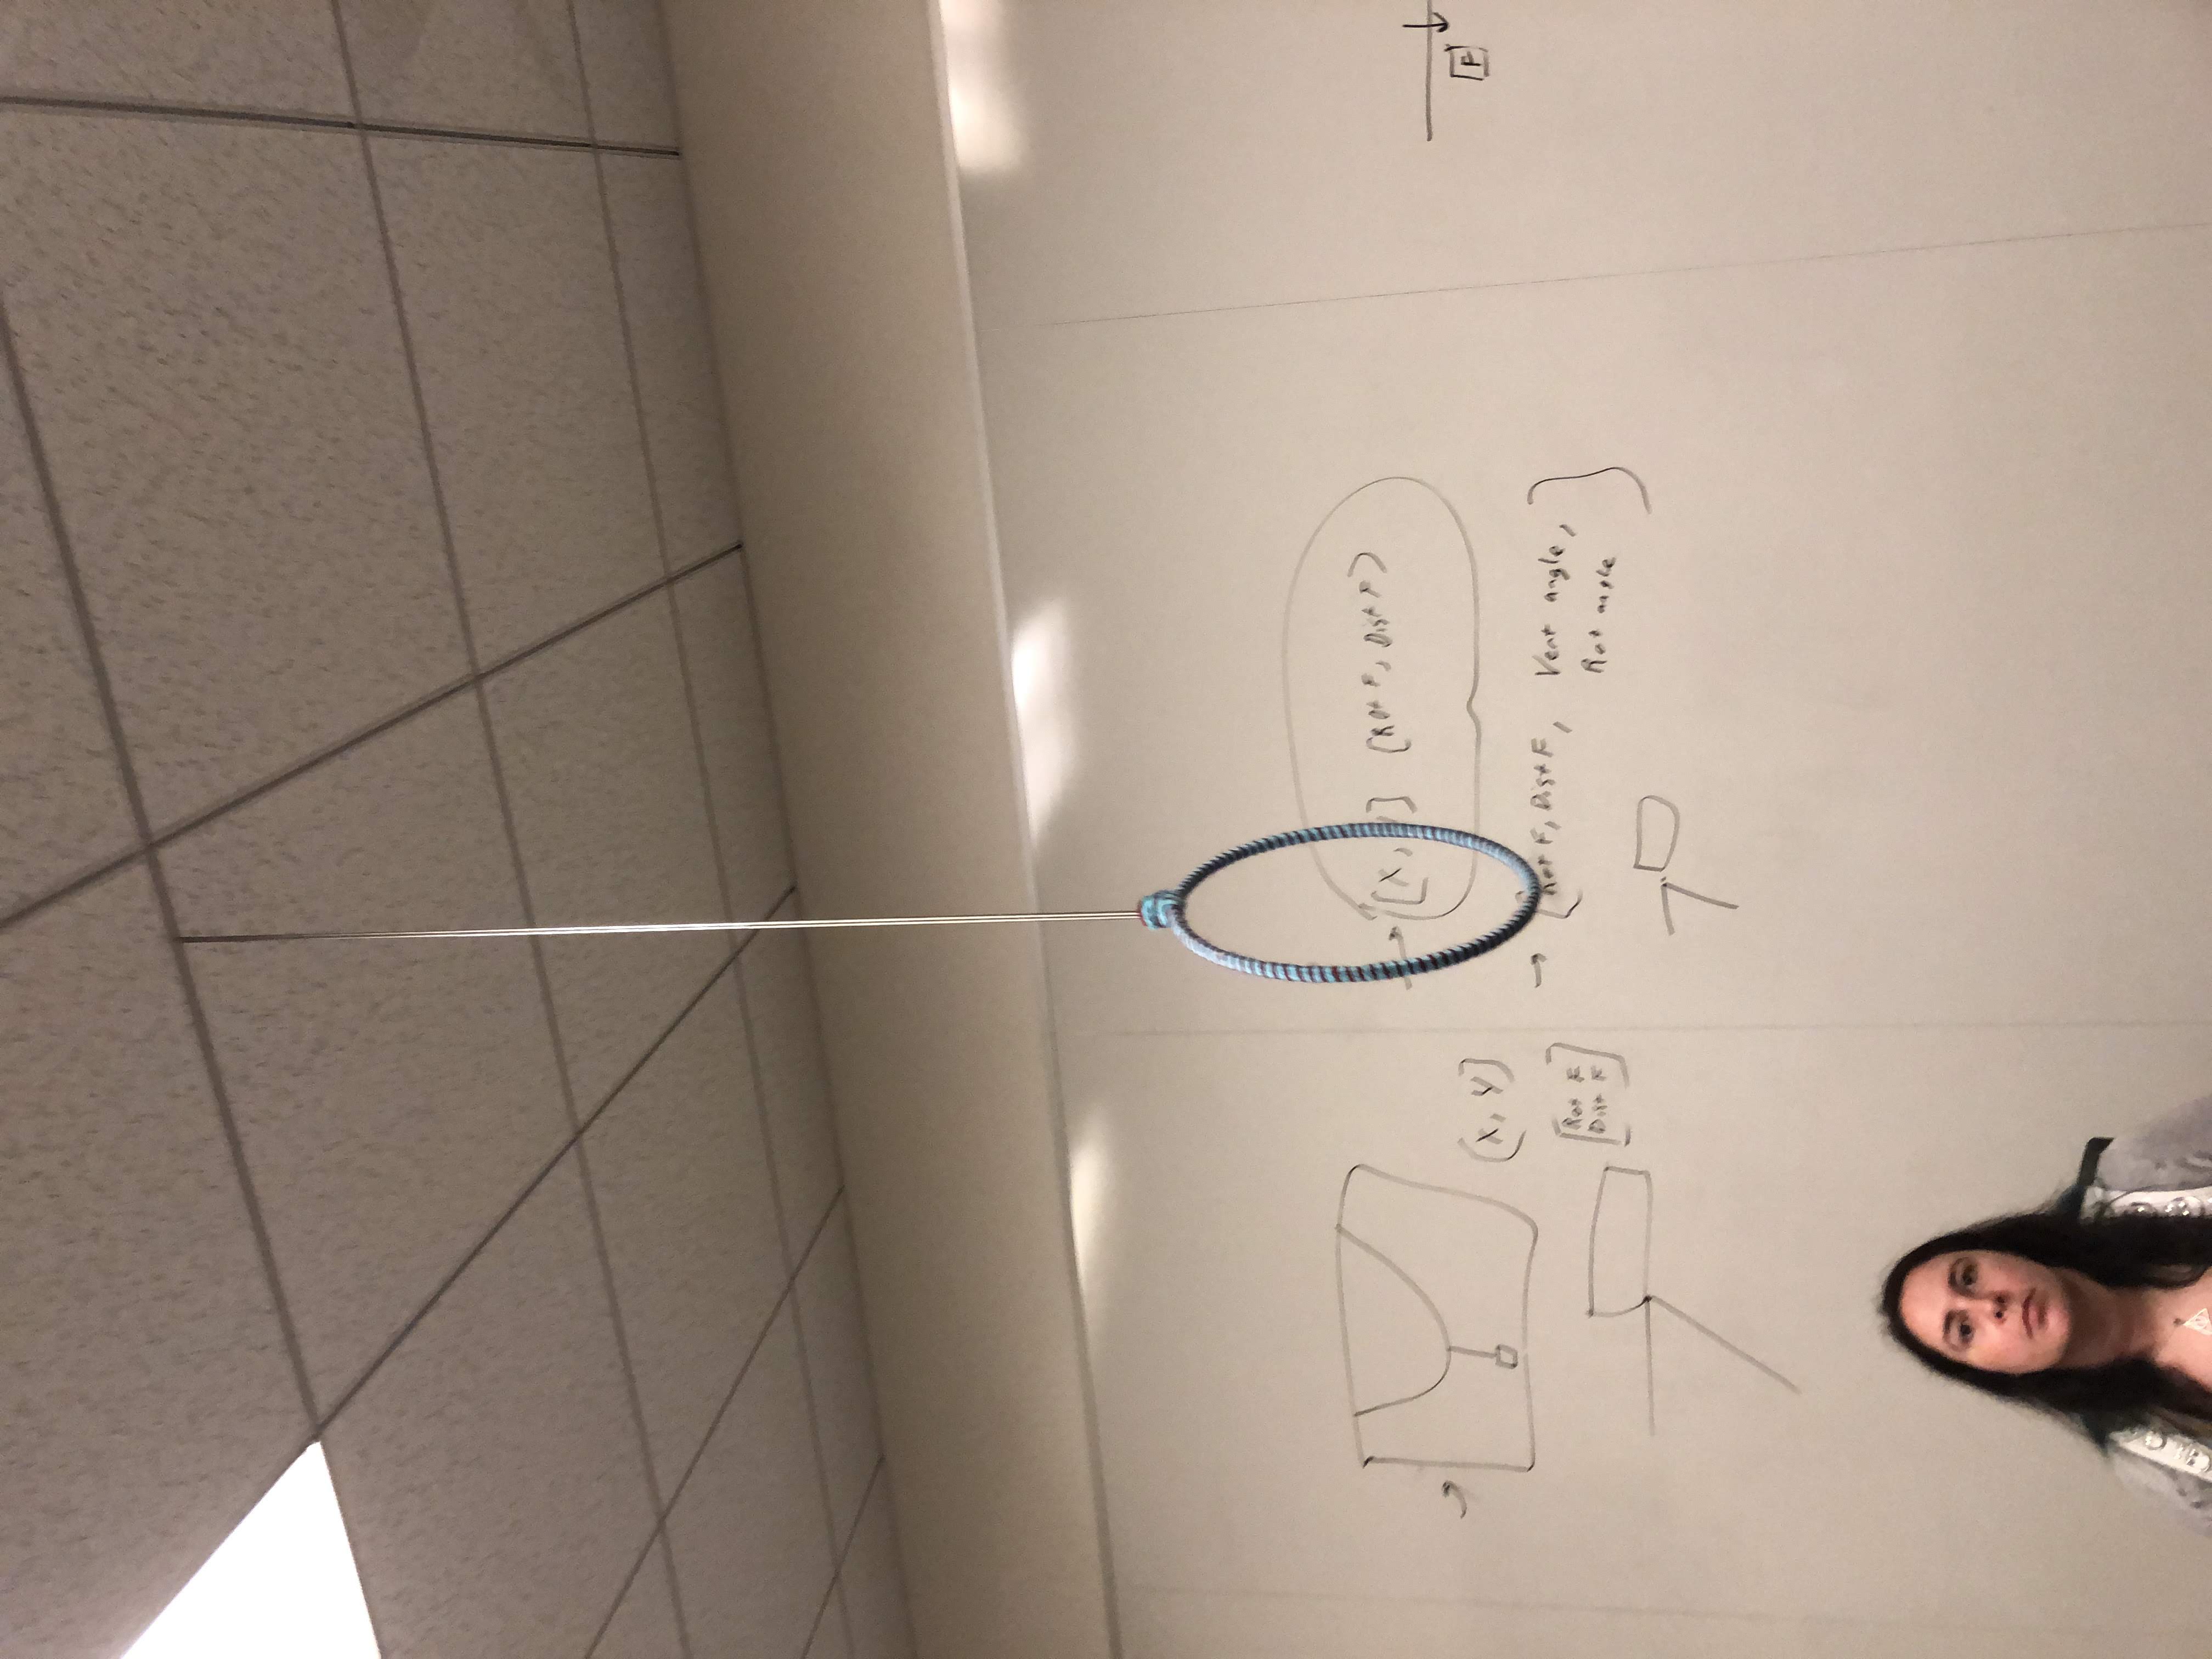 (x, y]
[Rot F
Dist F]
→ [x, ] (Rot F, Dist F)
→ [Rot F, Dist F, Vert angle,
Rot angle
F